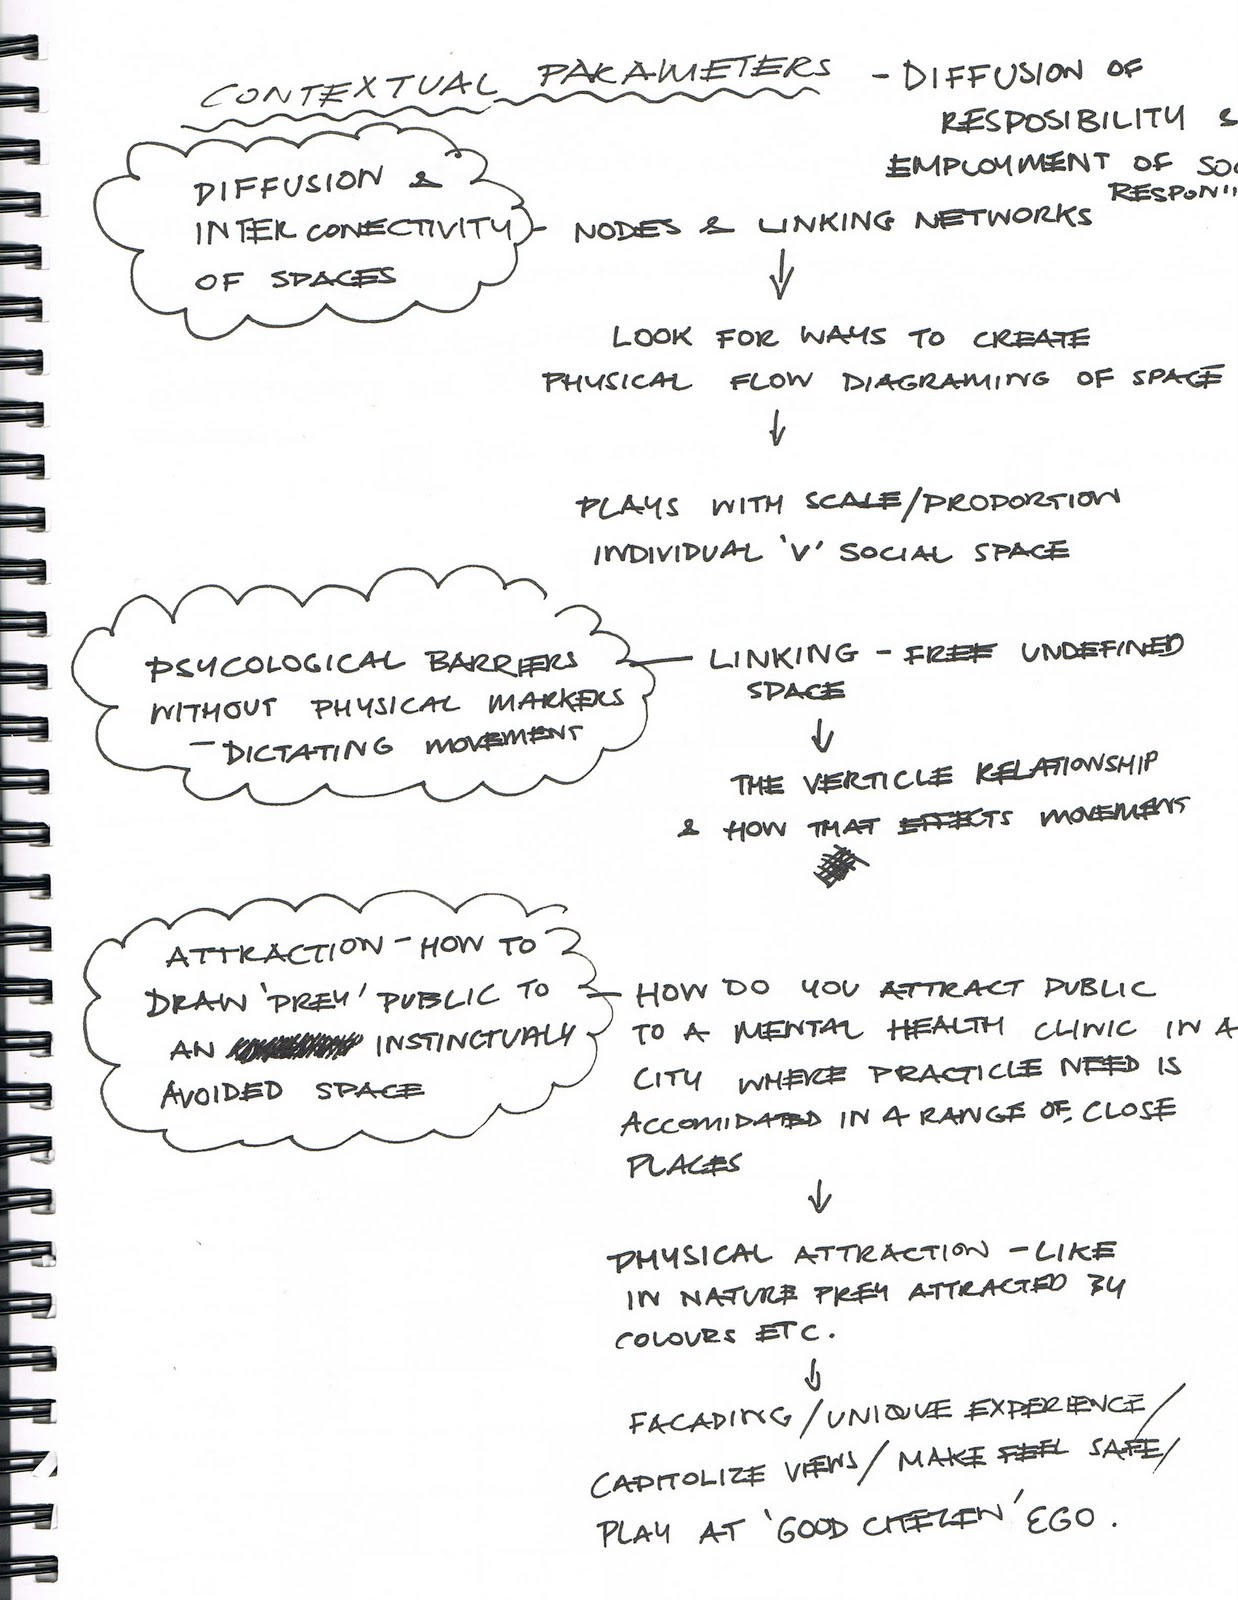 CONTEXTUAL PARAMETERS - DIFFUSION OF
RESPOSIBILITY &
EMPLOYMENT OF
DIFFUSION &
INTER CONECTIVITY
OF SPACES
- NODES & LINKING NETWORKS
↓
LOOK FOR WAYS TO CREATE
PHYSICAL FLOW DIAGRAMING OF SPACE
↓
PLAYS WITH SCALE/PROPORTION
INDIVIDUAL 'V' SOCIAL SPACE
PSYCOLOGICAL BARRIERS
WITHOUT PHYSICAL MARKERS
- DICTATING MOVEMENT
- LINKING - FREE UNDEFINED
SPACE
↓
THE VERTICLE RELATIONSHIP
& HOW THAT EFFECTS MOVEMENT
ATTRACTION - HOW TO
DRAW 'PREY' PUBLIC TO
AN INSTINCTUALY
AVOIDED SPACE
- HOW DO YOU ATTRACT PUBLIC
TO A MENTAL HEALTH CLINIC IN A
CITY WHERE PRACTICLE NEED IS
ACCOMIDATED IN A RANGE OF CLOSE
PLACES
↓
PHYSICAL ATTRACTION - LIKE
IN NATURE PREY ATTRACTED BY
COLOURS ETC.
↓
FACADING / UNIQUE EXPERIENCE /
CAPITOLIZE VIEWS / MAKE FEEL SAFE /
PLAY AT 'GOOD CITEZEN' EGO.